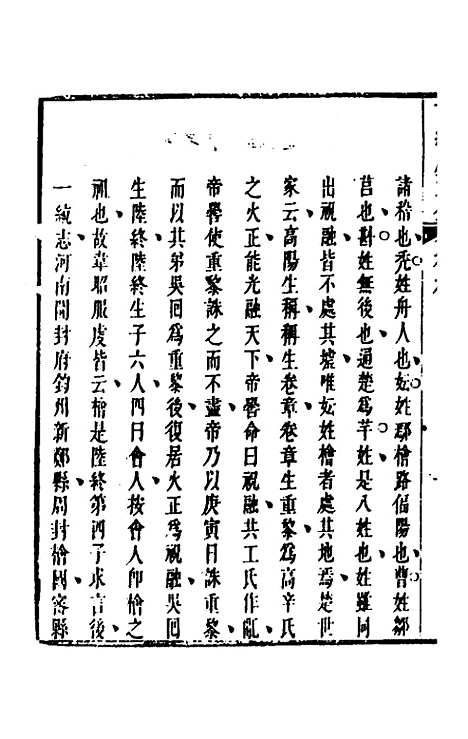 諸稽也禿姓舟人也妘姓鄢檜路偪陽也曹姓鄒
莒也斟姓無後也通楚爲芉姓是八姓也姓雖同
出祝融皆不處其墟唯妘姓檜者處其地焉楚世
家云高陽生稱稱生卷章卷章生重黎爲高辛氏
之火正能光融天下帝嚳命曰祝融共工氏作亂
帝嚳使重黎誅之而不盡帝乃以庚寅日誅重黎
而以其弟吳回爲重黎後復居火正爲祝融吳回
生陸終陸終生子六人四曰會人按會人卽檜之
祖也故韋昭服虔皆云檜是陸終第四子求言後
一統志河南開封府鈞州新鄭縣周封檜國密縣